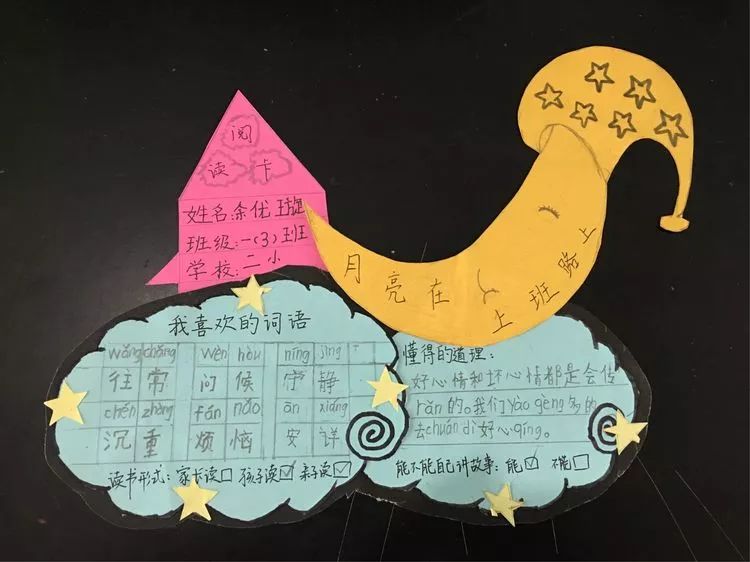 阅
读 卡
姓名:余优璇
班级:一(3)班
学校:二小
月亮在上班路上
我喜欢的词语
wǎng cháng wèn hòu níng jìng
往常 问候 宁静
chén zhòng fán nǎo ān xiáng
沉重 烦恼 安详
读书形式:家长读□ 孩子读☑ 亲子读☑
懂得的道理:
好心情和坏心情都是会传
rǎn的。我们yào gèng多的
去chuán dì好心qíng。
能不能自己讲故事:能☑ 不能□